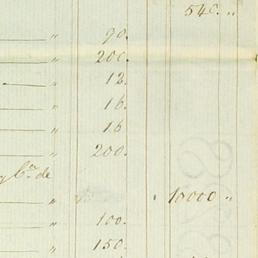 540. "
90.
200.
" 12.
" 16.
" 16
" 200.
de "
10000 "
" 100.
" 150.